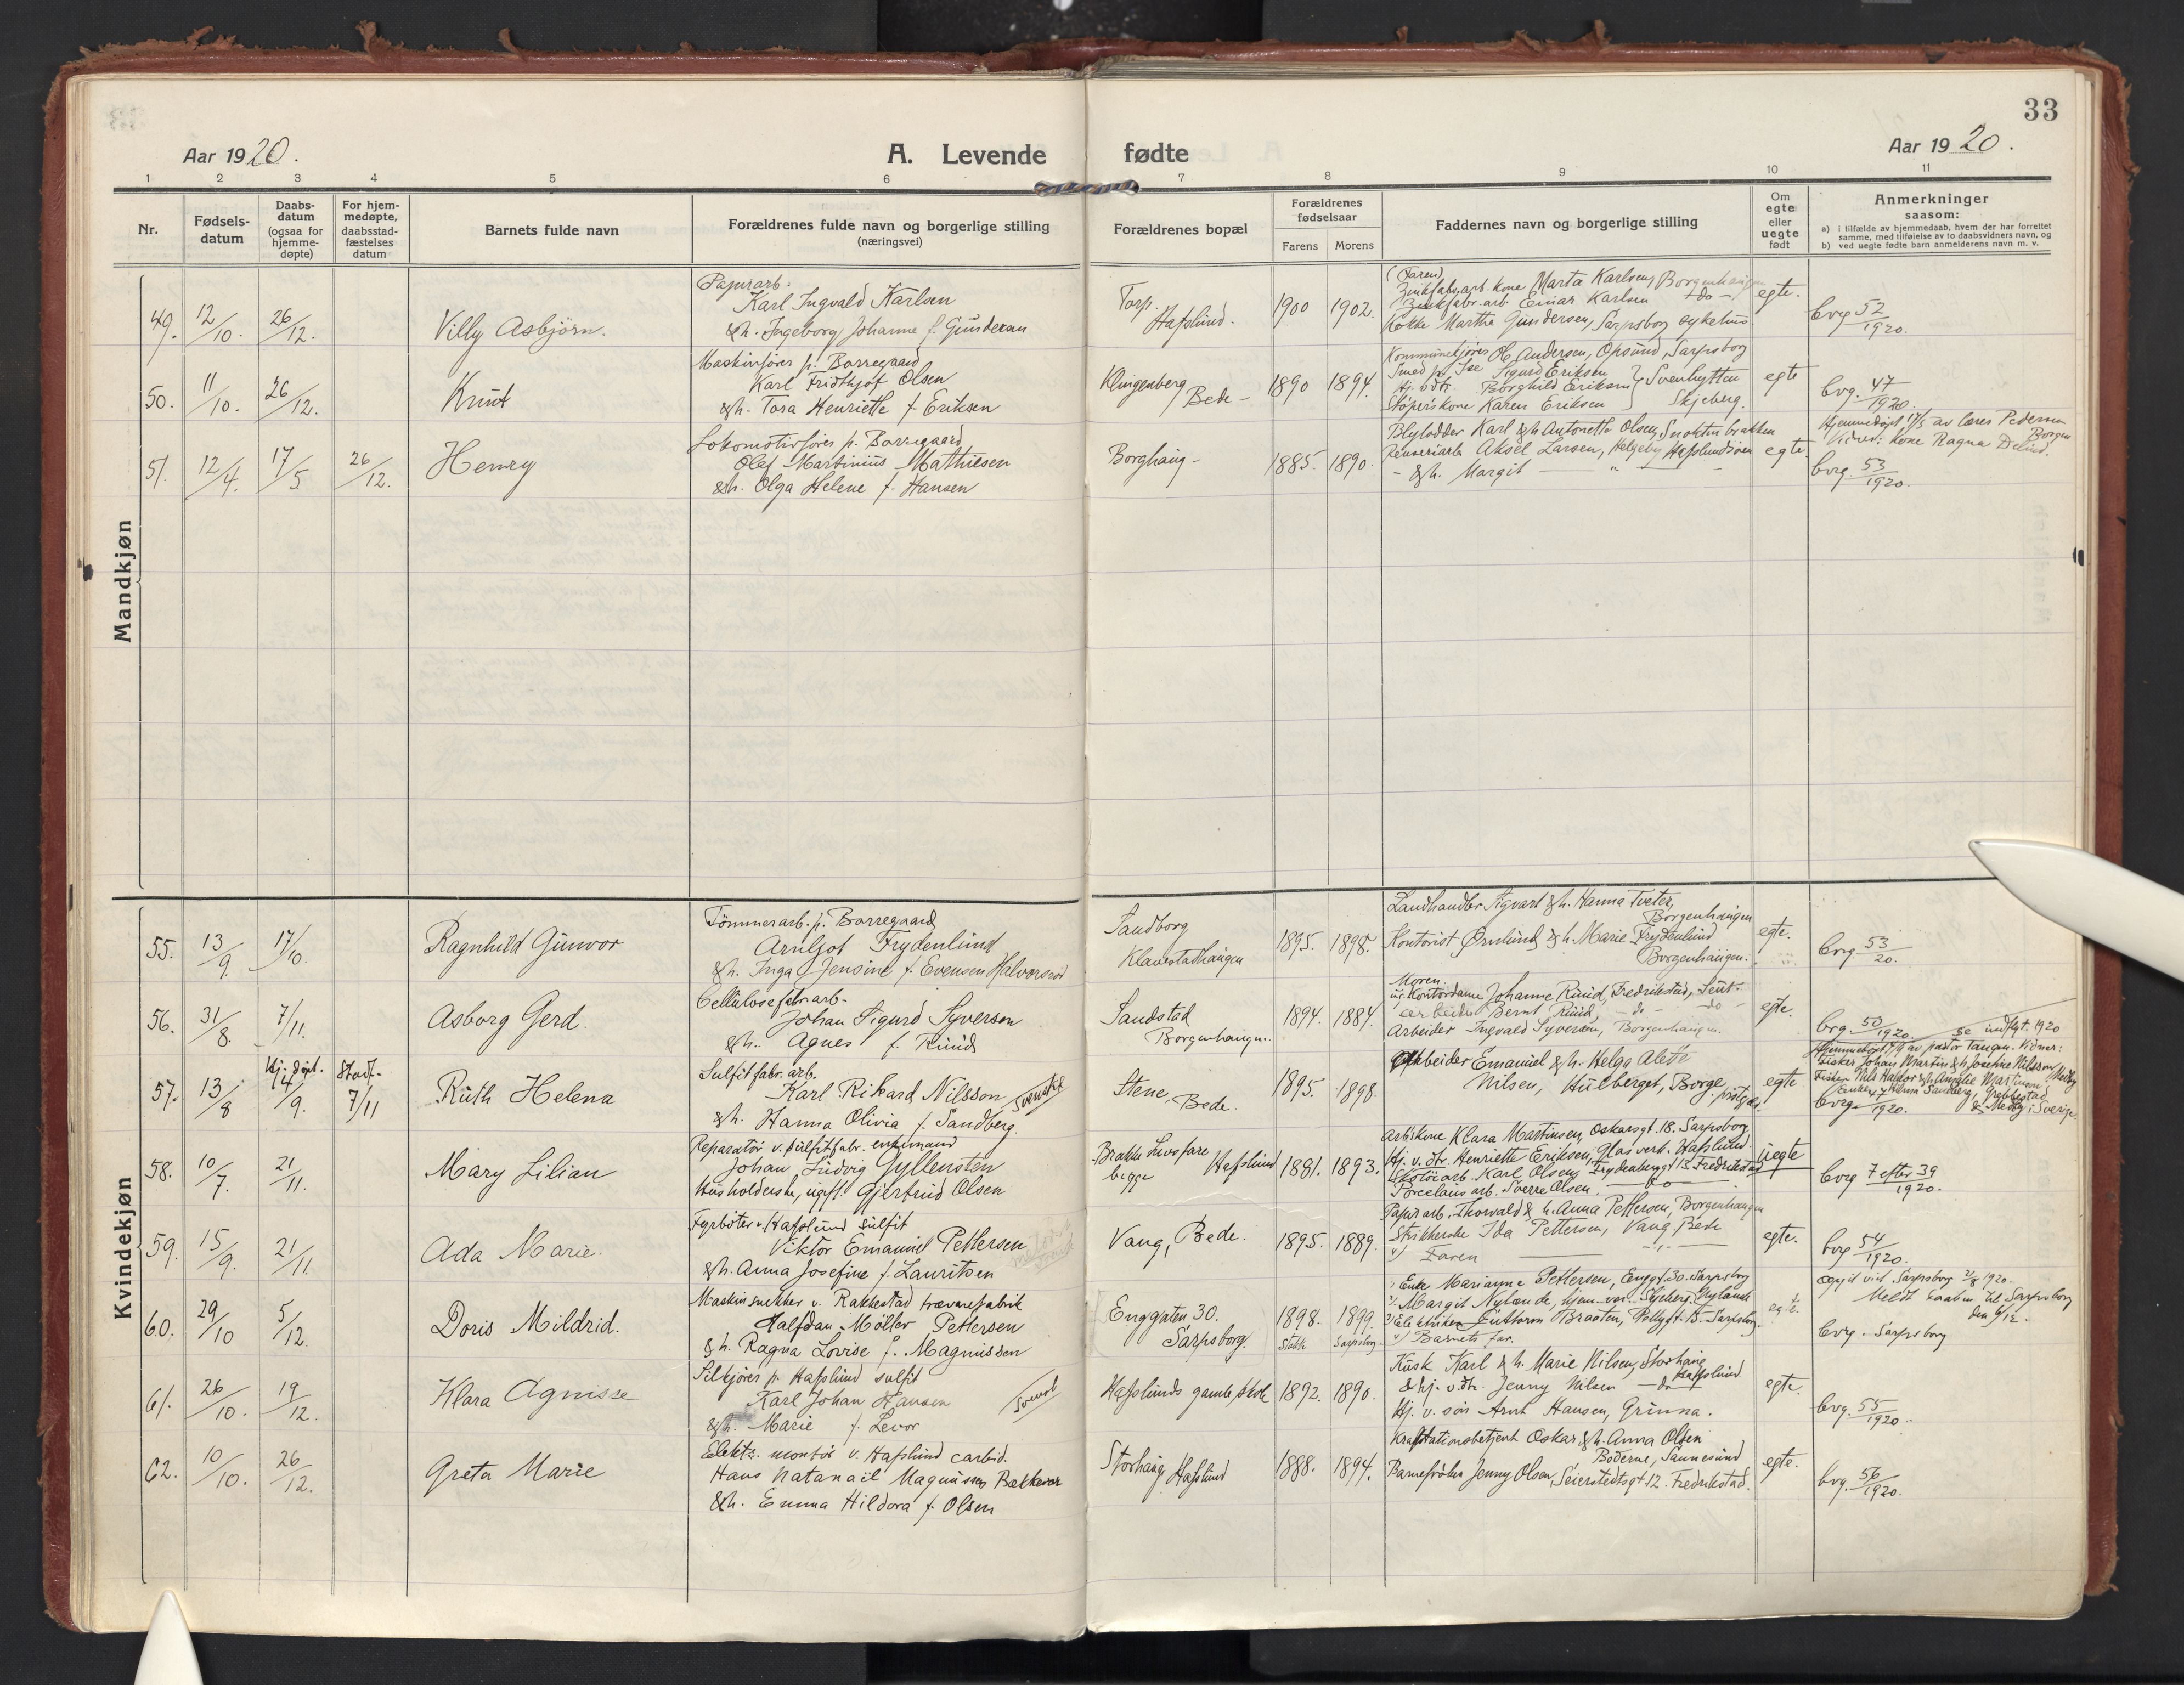 33
Aar 1920.
A. Levende fødte
Aar 1920.
1 2 3 4 5 6 7 8 9 10 11
Nr.
Fødsels-
datum
Daabs-
datum
(ogsaa for
hjemme-
døpte)
For hjem-
medøpte,
daabsstad-
fæstelses
datum
Barnets fulde navn
Forældrenes fulde navn og borgerlige stilling
(næringsvei)
Forældrenes bopæl
Forældrenes
fødselsaar
Farens Morens
Faddernes navn og borgerlige stilling
Om
egte
eller
uegte
født
Anmerkninger
saasom:
a) i tilfælde av hjemmedaab, hvem der har forrettet
samme, med tilføielse av to daabsvidners navn, og
b) ved uegte fødte barn anmelderens navn m. v.
Mandkjøn
49. 12/10. 26/12. Villy Asbjørn.
Papirarb.
Karl Ingvald Karlsen
& h. Ingeborg Johanne f. Gundersen
Torp.
Hafslund.
1900 1902.
(Faren)
Zinkfabr.arb. kone Marta Karlsen, Borgenhaugen
Zinkfabr. arb Einar Karlsen - do -
Kokke Martha Gundersen, Sarpsborg sykehus
egte.
bvg 52/1920.
50. 11/10. 26/12. Knut
Maskinfører p. Borregaard
Karl Fridthjof Olsen
& h. Tora Henriette f. Eriksen
Klingenberg
Bede -
1890 1894.
Andersen, Opsund, Sarpsborg
Smed p. Ise Sigurd Eriksen
Hj. v. dtr. Borghild Eriksen } Svenhytten
Støpers kone Karen Eriksen Skjeberg.
egte
bvg. 47/1920.
51. 12/4. 17/5. 26/12. Henry
Lokomotivfører p. Borregaard
Olaf Martinius Mathiesen
& h. Olga Helene f. Hansen
Borghaug -
1885. 1890.
Blylodder Karl & h Antonette Olsen,
Aksel Larsen, Helgeby Hafslundsøen
- & h. Margit — " —
egte.
Hjemmedøpt 17/5 av lærer Pedersen
Borgen
Vidne: kone Ragna
bvg. 53/1920.
Kvindekjøn
55. 13/9. 17/10. Ragnhild Gunvor
Tømmerarb. p. Borregaard
Arnljot Frydenlund
& h. Inga Jensine f. Evensen Halvorsrød
Sandborg
Klavestadhaugen
1895. 1898.
Landhandler Sigvart & h. Hanna Tveter,
Borgenhaugen
Kontorist Ørnlund & h. Marie Frydenlund
Borgenhaugen.
egte.
bvg 53/20.
56. 31/8. 7/11. Asborg Gerd.
Cellulosefabr arb-
Johan Sigurd Syversen
& h. Agnes f. Ruud
Sandstad
Borgenhaugen.
1894. 1884.
Moren.
ug. Kontordame Johanne Ruud, Fredrikstad,
arbeider Bernt Ruud, - do - - do -
Arbeider Ingvald Syversen, Borgenhaugen.
egte.
bvg 50/1920.
57. 13/8 Hj. døpt. 14/9. Stadf. 7/11 Ruth Helena
Sulfitfabr. arb.
Karl Rikard Nilsson
& h. Hanna Olivia f. Sandberg.
svenske
Stene,
Bede.
1895. 1898.
Arbeider Emanuel & h. Helga Alette
Nilsen, Hulberget, Borge, prstgj.
egte
se indfgt. 1920
Hjemmedøpt 14/9 av pastor Tangen. Vidner:
Fisker Johan Martin & h. Josefine Nilsson
bvg. 47/1920.
58. 10/7. 21/11. Mary Lilian
Reparatør v. sulfitfabr. enkemand
Johan Ludvig Gyllensten
Husholderske, ugift. Gjertrud Olsen
begge Hafslund
1881. 1893.
Arb.s kone Klara Martinsen, Oskarsgt. 18. Sarpsborg
Hj. v. dtr. Henriette Eriksen, Glasverk. Hafslund.
Skotøiarb. Karl Olsen, Frydenberggt 15 Fredrikstad
Porcelæns arb. Sverre Olsen. — do —
uegte
bvg 7 efter 39/1920.
59. 15/9. 21/11. Ada Marie.
Fyrbøter v. Hafslund sulfit
Viktor Emanuel Pettersen
& h. Anna Josefine f. Lauritsen
Vang, Bede.
1895. 1889.
Papirarb. Thorvald & h. Anna Pettersen, Borgenhaugen
Strikkerske Ida Pettersen, Vang, Bede
Faren
egte.
bvg 54/1920.
60. 29/10 5/12. Doris Mildrid.
Maskinsnekker v. Rakkestad trævarefabrik
Halfdan Møller Pettersen
& h. Ragna Lovise f. Magnussen
Enggaten 30.
Sarpsborg.
1898. 1899.
Sarpsborg.
Enke Marianne Pettersen, Enggt. 30. Sarpsborg
Margit Nylænde, hjem. vær. Skjeberg, Nylænde
Elektriker Guttorm Braaten, Sarpsborg.
Barnets far.
egte.
Opgit vid Sarpsborg 2/8 1920.
Meldt daaben til Sarpsborg
den 6/12.
bvg. Sarpsborg
61. 26/10. 19/12. Klara Agnisse
p. Hafslund sulfit
Karl Johan Hansen
& h. Marie f. Levor
svensk
Hafslunds gamle skole
1892. 1890.
Kusk Karl & h. Marie Nilsen, Storhaug
Hafslund
& hj. v. dtr. Jenny Nilsen - do -
Hj. v. søn Arnt Hansen, Grinna.
egte.
bvg. 55/1920.
62. 10/10. 26/12. Greta Marie
Elektr. montør v. Hafslund carbid.
Hans Natanail Magnussen Bækkevar
& h. Emma Hildora f. Olsen
Storhaug, Hafslund
1888. 1894.
Kraftstationsbetjent Oskar & h. Anna Olsen
Boderne, Sannesund
Barnefrøken Jenny Olsen, Seierstedtsgt 12. Fredrikstad.
egte.
bvg. 56/1920.